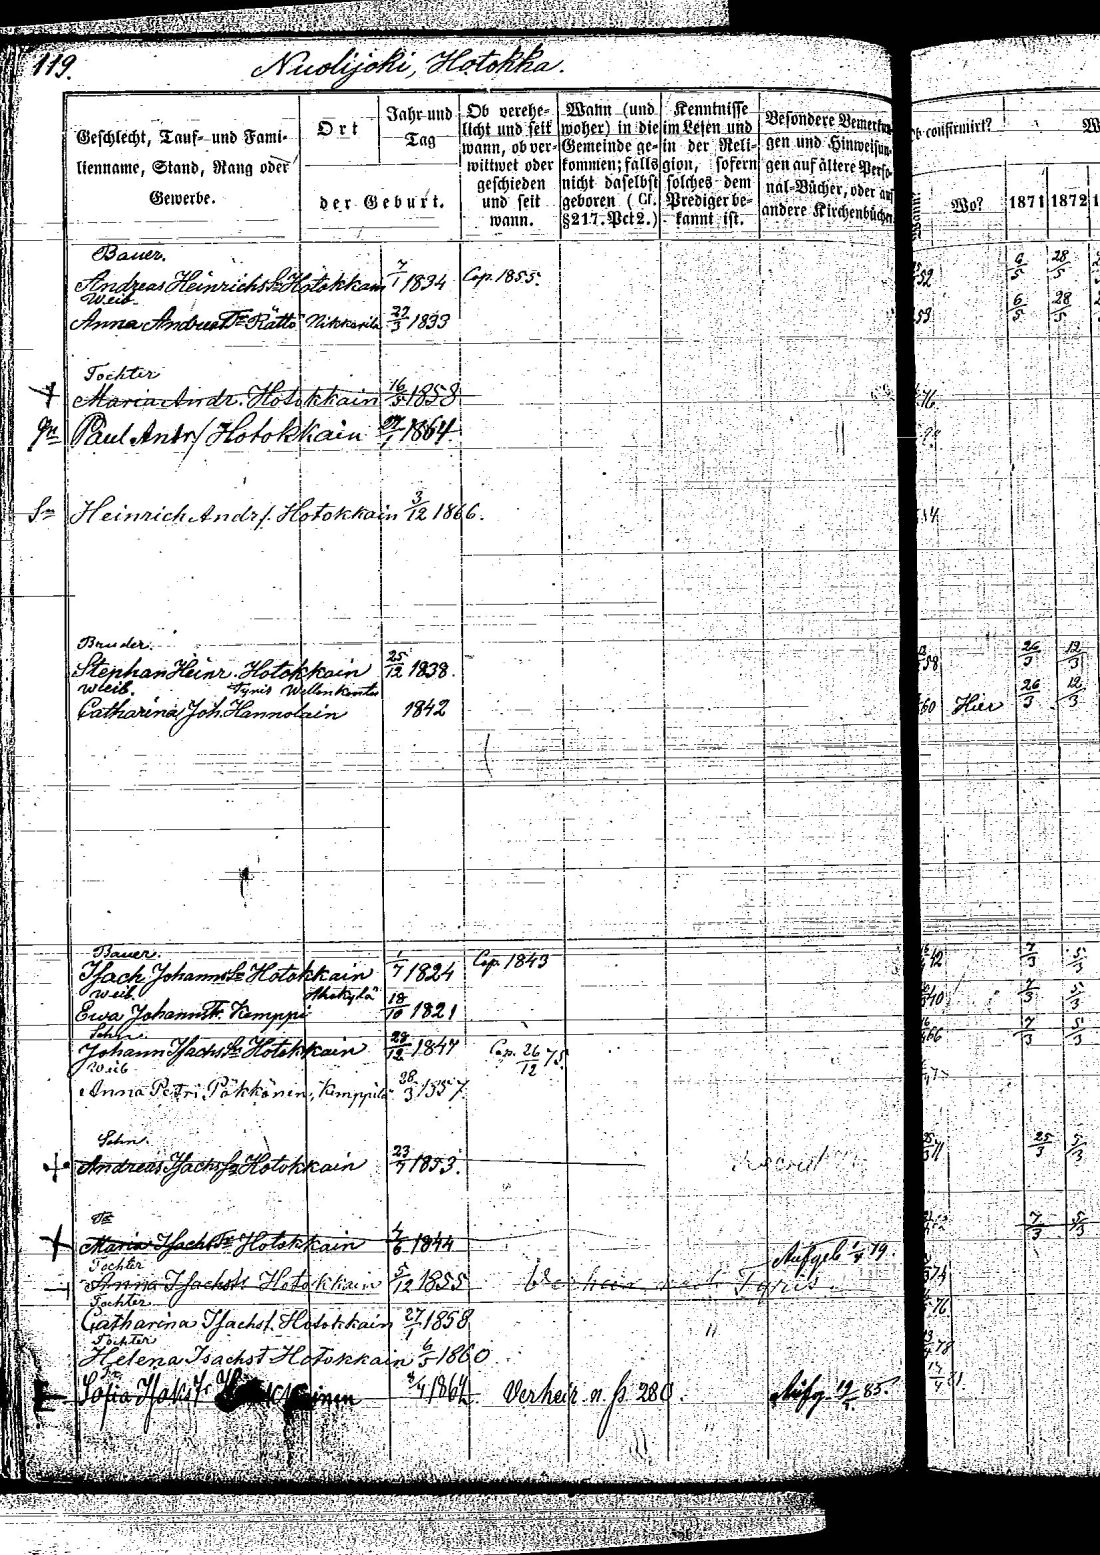 119.
Nuolijoki, Hotokka.
Geschlecht, Tauf- und Fami-
lienname, Stand, Rang oder
Gewerbe.
Ort
Jahr und
Tag
der Geburt.
Ob verehe-
licht und seit
wann, ob ver-
wittwet oder
geschieden
und seit
wann.
Wann (und
woher) in die
Gemeinde ge-
kommen; falls
nicht daselbst
geboren (Cf.
§217. Pct 2.)
Kenntnisse
im Lesen und
in der Reli-
gion, sofern
solches dem
Prediger be-
kannt ist.
Besondere Bemerkun-
gen und Hinweisun-
gen auf ältere Perso-
nal-Bücher, oder au
andere Kirchenbücher
Ob confirmirt?
Wo?
1871 1872
Bauer.
Andreas Heinrichs Sn Hotokkain 7/1 1834 Cop. 1855. 52 6/5 28/5
Weib.
Anna Andreas Tr Rättö Nikkarila 22/3 1833 53 6/5 28/5
Tochter
Maria Andr. Hotokkain 16/5 1858 76
Paul Andr. Hotokkain 1864.
Sn Heinrich Andr. Hotokkain 3/12 1866.
Bruder.
Stephan Heinr. Hotokkain 25/12 1838. 58 26/3 12/3
Weib. Tyris
Catharina Joh. Hannolain 1842 60 Hier 26/3 12/3
Bauer.
Isach Johanns Sn Hotokkain 1/7 1824 Cop. 1843 42 7/3 5/3
Weib. Ahokylä
Ewa Johanns Tr. Kemppi 18/10 1821 40 7/3 5/3
Sohn.
Johann Isachs Sn Hotokkain 28/12 1847 Cop. 26/12 75. 66 7/3 5/3
Weib
Anna Petri Pökkönen, Kemppilä 28/3 1857.
Sohn.
Andreas Isachs Sn Hotokkain 23/7 1853. 71 25/3 5/3
Tr
Maria Isachs Tr Hotokkain 4/6 1844 7/3 5/3
Tochter Aufgeb. 19.
Anna Isachs Tr Hotokkain 5/12 1855 Tyris 74
Tochter
Catharina Isachs t. Hotokkain 27/1 1858 76
Tochter
Helena Isachs t Hotokkain 6/5 1860 78
Sofia Isaks Tr 1864. Verheir. n. S. 280. Aufg. 85. 81